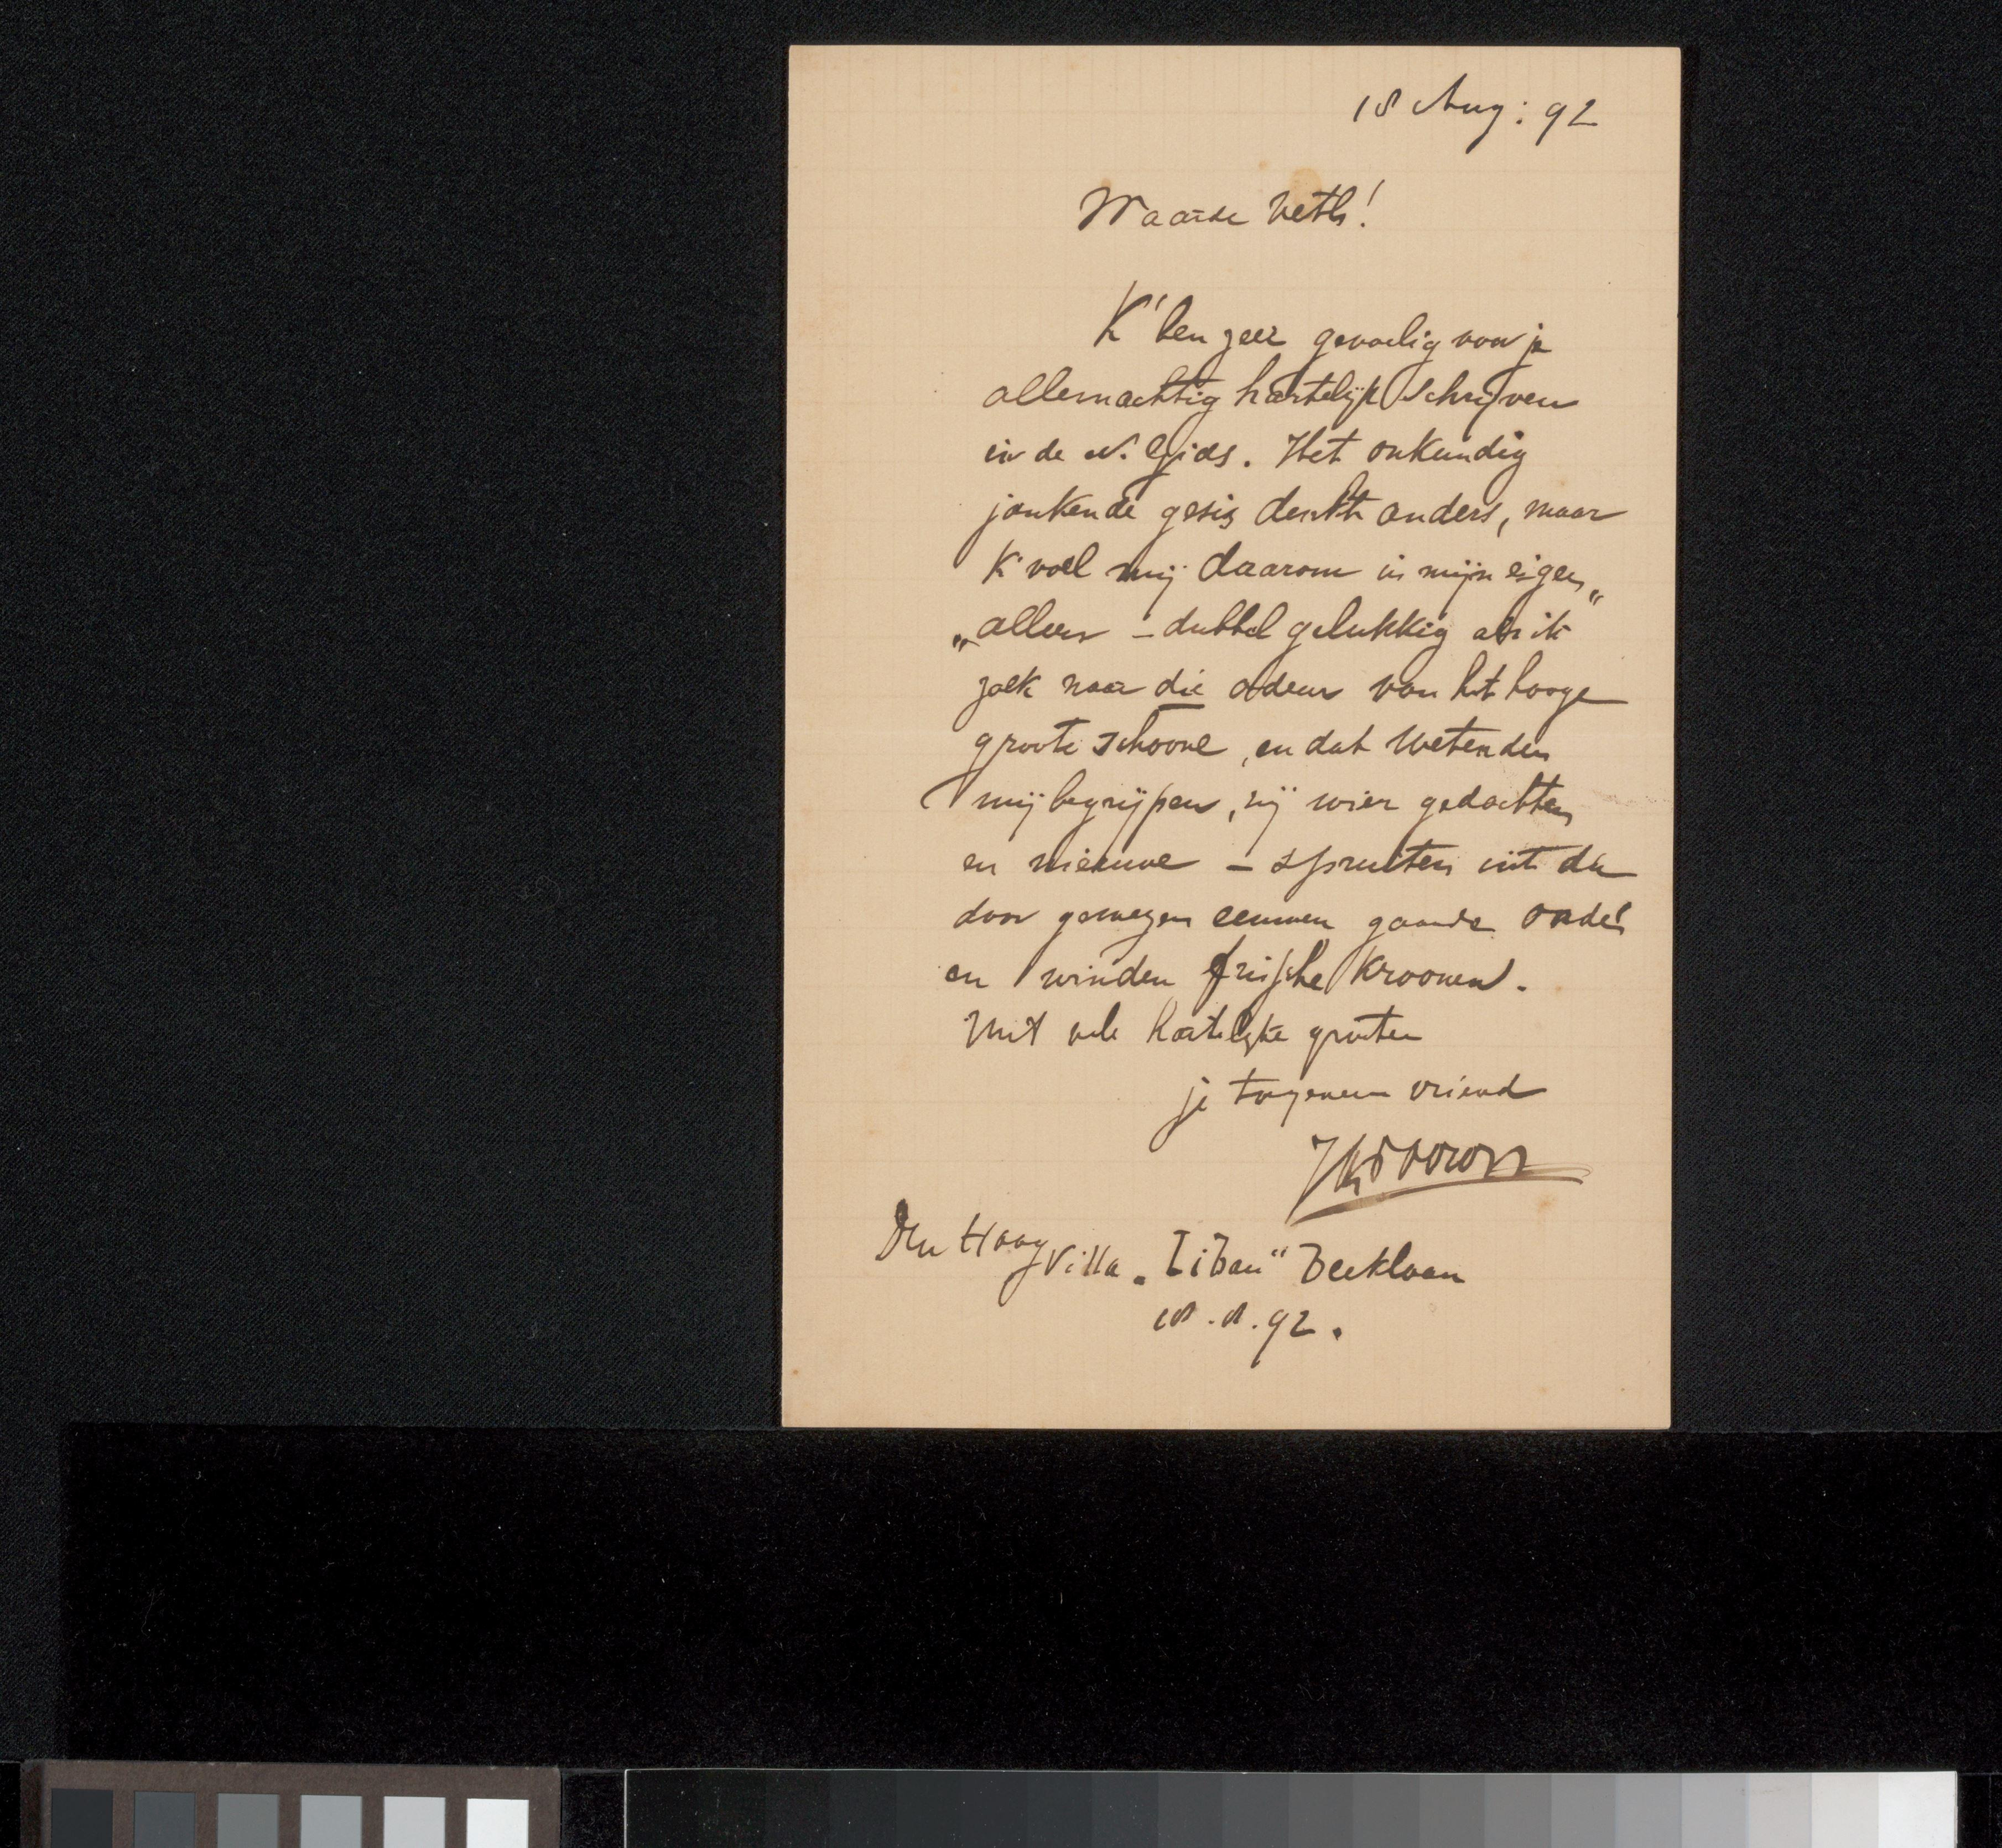 18 Aug: 92
Waarde Veth!
K' ben zeer gevoelig voor je
allemachtig hartelijk schrijven
in de N. Gids. Het onkundig
jankende denkt anders, maar
K' voel mij daarom in mijn eigen„
„alleen – dubbel gelukkig als ik
zoek naar die odeur van het hooge
groote schoone, en dat wetenden
mij begrijpen, zij wier gedachten
en nieuwe – spruiten uit de
door eeuwen gaande oude
en winden frissche Kroonen.
Met vele hartelijke groeten
je toegenegen vriend
Den Haag Villa „Liban" Beeklaan
18.8.92.